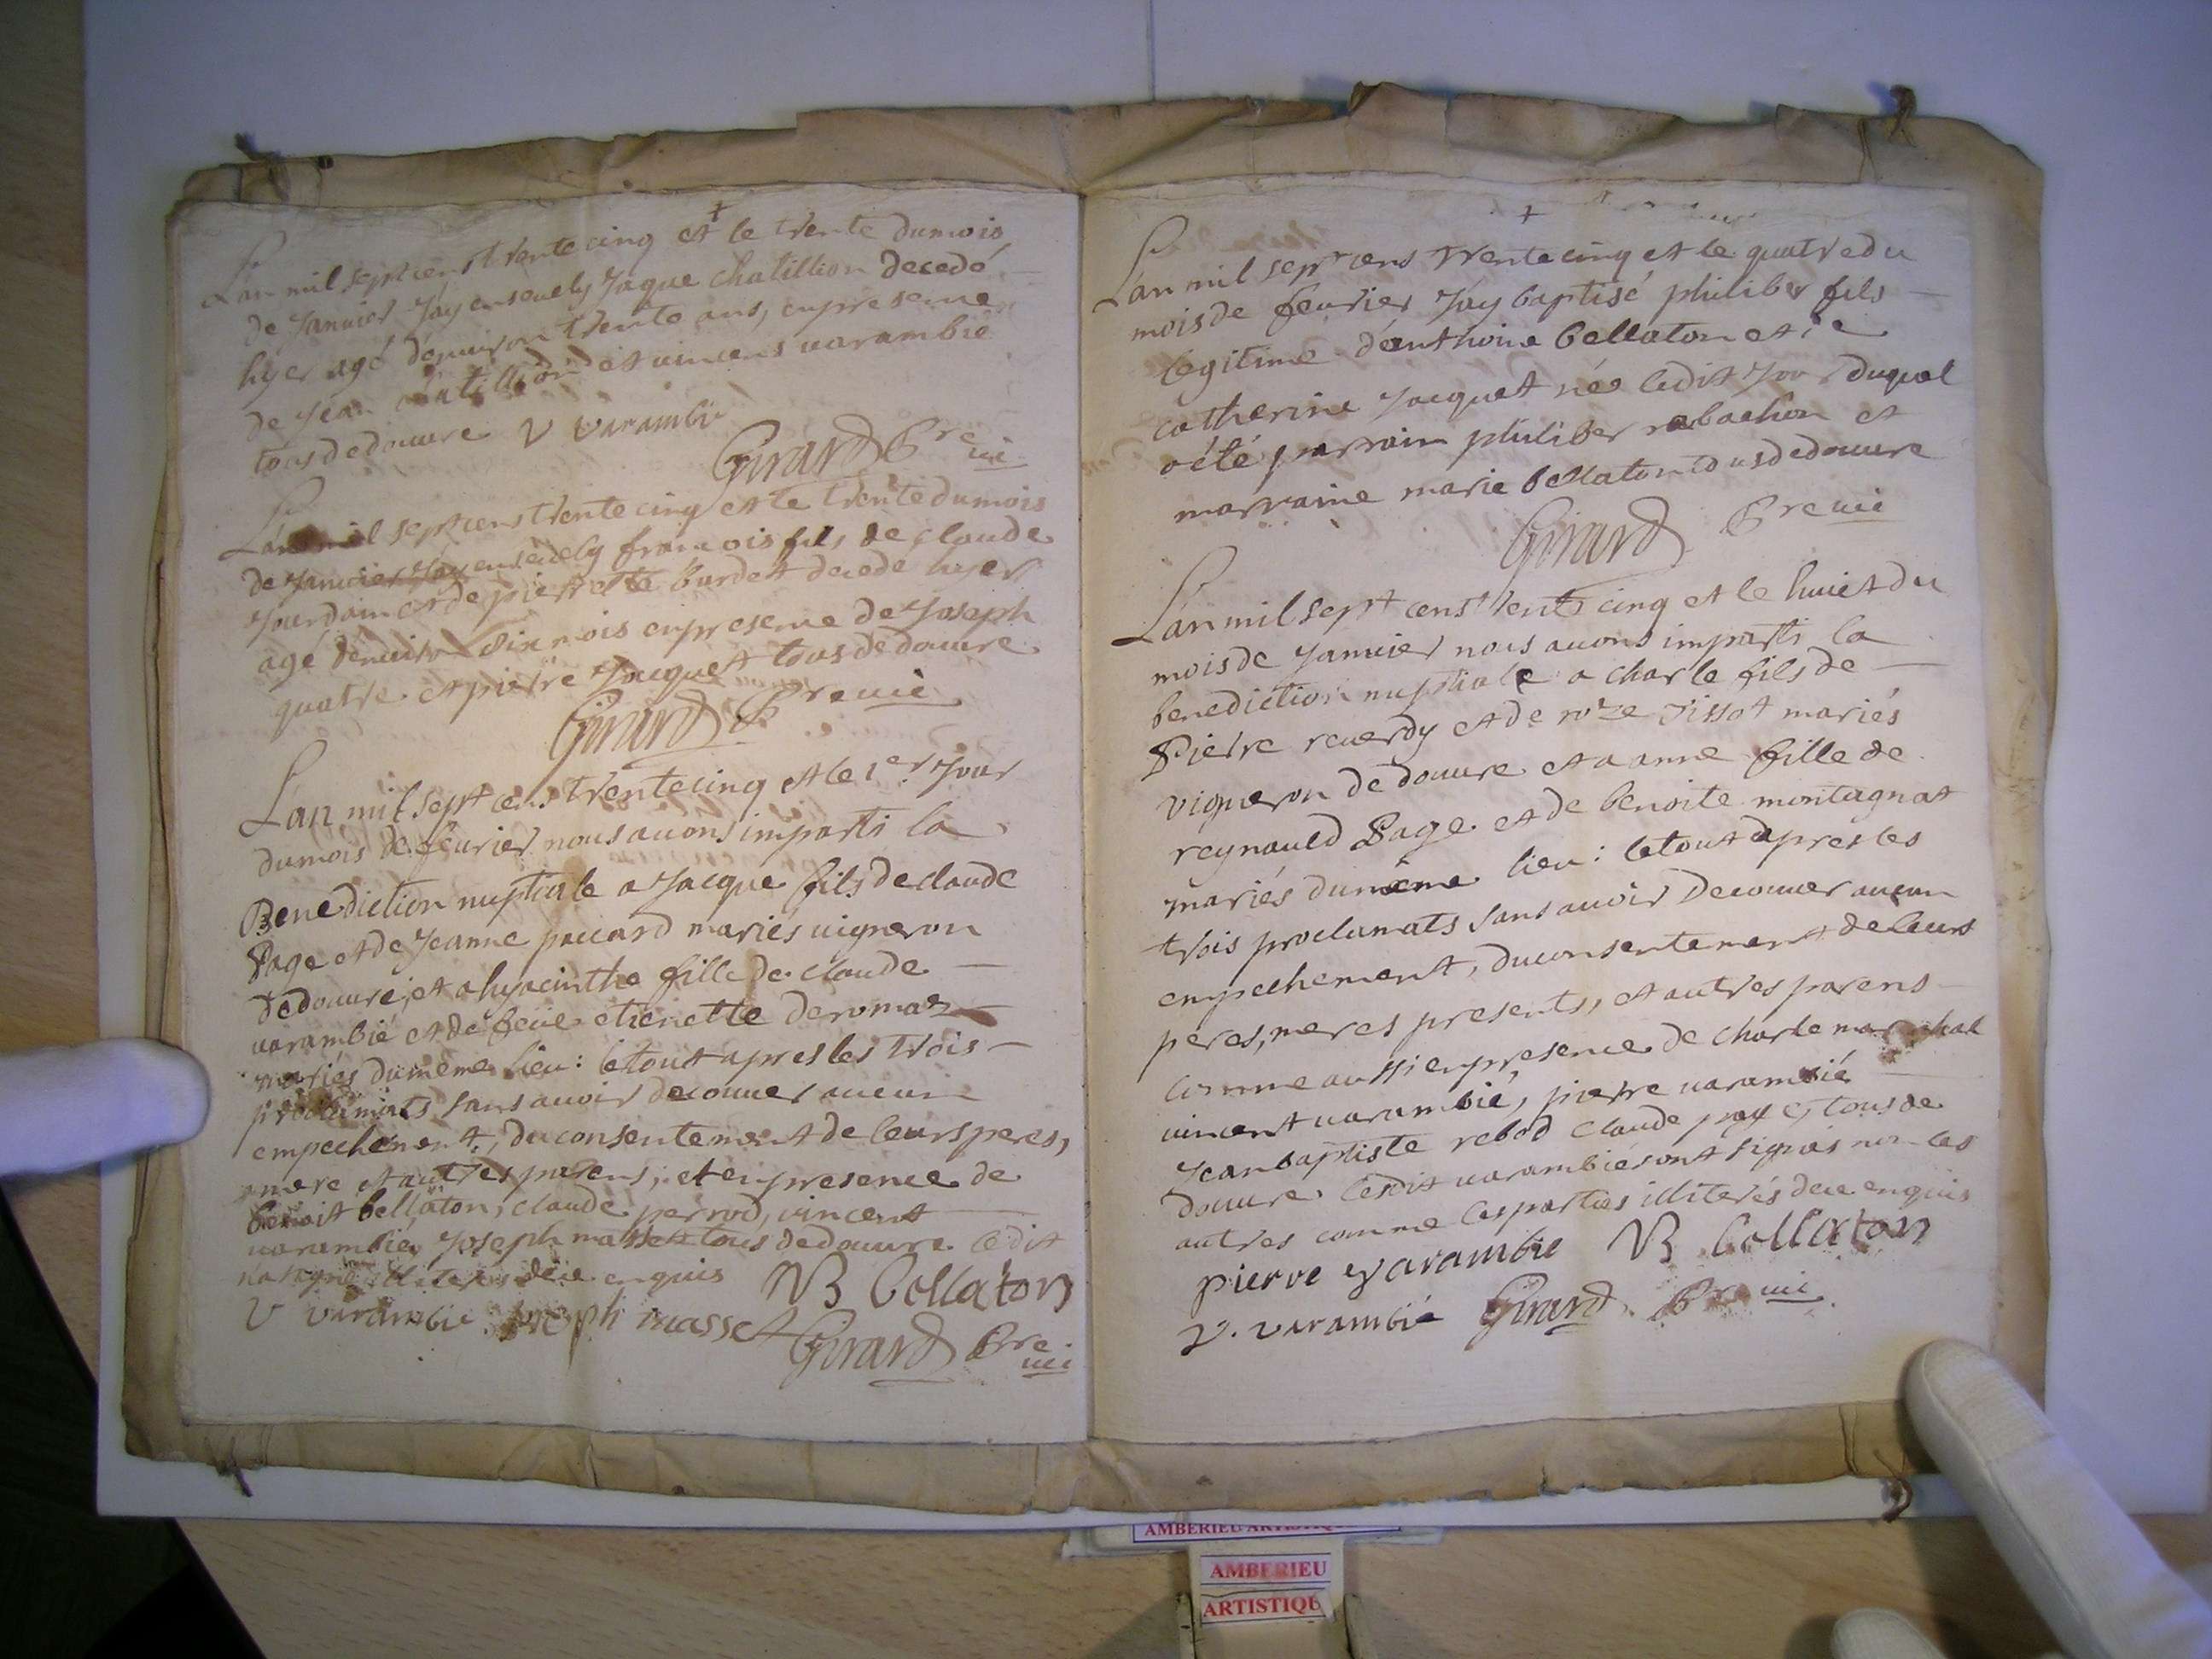 +
Lan mil sept cens trente cinq et le trente du mois
de Janvier Jay ensevely Jaque chatillion decedé
hyer agé denviron trente ans, en presence
de Jean chatillion et vincens varambié
tous de douvre V varambié
Girard Pre vic
Lan mil sept cens trente cinq et le trente du mois
de Janvier Jay ensevely francois fils de claude
Jourdain et de pierrette Burdet decede hyer
agé denviron six mois en presence de Joseph
quatre et pierre Jacquet tous de douvre
Girard Pre vic
Lan mil sept cens trente cinq et le 1er Jour
du mois de fevrier nous avons imparti la
Benediction nuptiale a Jacque fils de claude
Page et de Jeanne paccard mariés vigneron
de douvre, et a hyacinthe fille de claude
varambié et de feüe etienette deromaz
mariés du même lieu : le tout apres les trois
proclamats sans avoir decouver aucun
empechement, du consentement de leurs peres,
mere et autres parens, et en presence de
benoit bellaton, claude perrod, vincent
varambié, Joseph masset tous de douvre ledit
illiterés dece enquis B Collaton
V varambié Joseph masset
Girard Pre vic
+
Lan mil sept cens trente cinq et le quatre du
mois de fevrier Jay baptisé philiber fils
legitime d'anthoine bellaton et de
catherine Jacquet née ledit Jour duquel
a été parrain philiber rabachon et
marraine marie bellaton tous de douvre
Girard Pre vic
Lan mil sept cens trente cinq et le huict du
mois de Janvier nous avons imparti la
benediction nuptiale a charle fils de
Pierre reverdy et de roze Tissot mariés
vigneron de douvre et a anne fille de
reynauld Page et de benoite montagnat
mariés du même lieu : le tout apres les
trois proclamats sans avoir decouver aucun
empechement, du consentement de leurs
peres, meres presents, et autres parens
comme aussi en presence de charle marechal
vincent varambié, pierre varambié
Jean baptiste rebod claude page tous de
douvre lesdit varambié sont signés non les
autres comme les parties illiterés dece enquis
pierre varambie B Collaton
V. varambié Girard Pre vic
AMBERIEU ARTISTIQUE
AMBERIEU
ARTISTIQUE